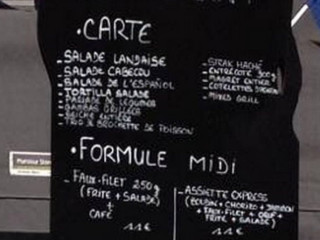 • CARTE
- SALADE LANDAISE
- SALADE CABECOU
- SALADE DE L'ESPAÑOL
- TORTILLA SALADE
- PARILLADE DE LÉGUMES
- GAMBAS GRILLÉES
- SEICHE ENTIÈRE
- TRIO DE BROCHETTE DE POISSON
- STEAK HACHÉ
- ENTRECÔTE 300g
- MAGRET ENTIER
- COTELETTES D'AGNEAU
- MIXED GRILL
• FORMULE MIDI
- FAUX-FILET 250g
(FRITE + SALADE)
+
CAFÉ
11€
- ASSIETTE EXPRESS
(BOUDIN + CHORIZO + JAMBON
+ FAUX-FILET + OEUF +
FRITE + SALADE)
11€